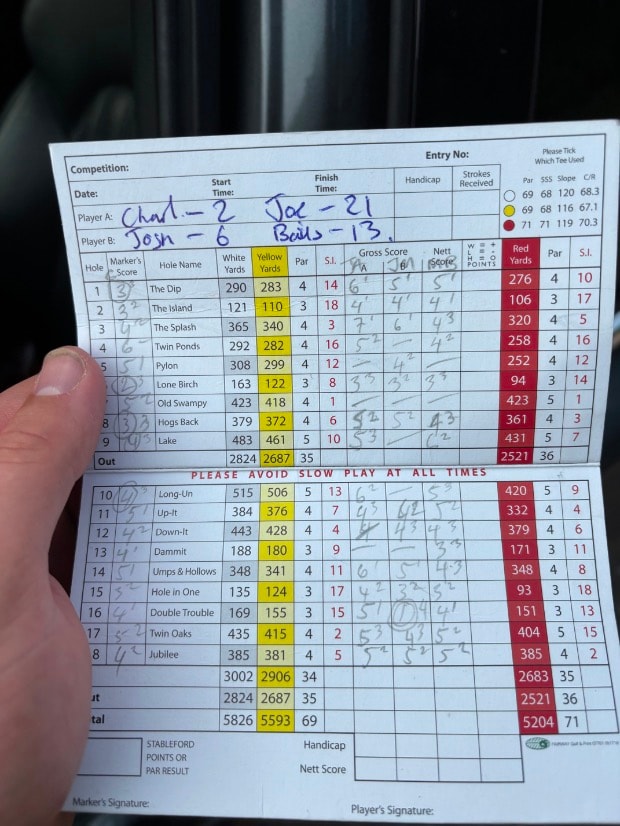 Competition: Entry No: Please Tick Which Tee Used
Date: Start Time: Finish Time: Handicap Strokes Received Par SSS Slope C/R
69 68 120 68.3
Player A: Charl - 2 Joe - 21 69 68 116 67.1
Player B: Josh - 6 Bails - 13. 71 71 119 70.3
Hole Marker's Score Hole Name White Yards Yellow Yards Par S.I. Gross Score A B Nett Score W = + L = - H = O POINTS Red Yards Par S.I.
1 The Dip 290 283 4 14 6' 5' 5' 276 4 10
2 3² The Island 121 110 3 18 4' 4' 4' 106 3 17
3 4² The Splash 365 340 4 3 7' 6' 4³ 320 4 5
4 6 - Twin Ponds 292 282 4 16 5² - 4² 258 4 16
5 5' Pylon 308 299 4 12 - 4² - 252 4 12
Lone Birch 163 122 3 8 3³ 3² 3³ 94 3 14
5² Old Swampy 423 418 4 1 - - - 423 5 1
8 Hogs Back 379 372 4 6 5² 5² 4 3 361 4 3
9 Lake 483 461 5 10 5³ - 6² 431 5 7
Out 2824 2687 35 2521 36
PLEASE AVOID SLOW PLAY AT ALL TIMES
10 Long-Un 515 506 5 13 6² - 5³ 420 5 9
11 5' Up-It 384 376 4 7 4³ 5² 332 4 4
12 4² Down-It 443 428 4 4 4³ 4³ 379 4 6
13 4' Dammit 188 180 3 9 - - 3³ 171 3 11
14 5' Umps & Hollows 348 341 4 11 6' 5' 4.3 348 4 8
15 3² Hole in One 135 124 3 17 4² 3² 5² 93 3 18
16 4' Double Trouble 169 155 3 15 5' 4' 151 3 13
17 5² Twin Oaks 435 415 4 2 5³ 4³ 5² 404 5 15
8 4² Jubilee 385 381 4 5 5² 5² 5² 385 4 2
3002 2906 34 2683 35
ut 2824 2687 35 2521 36
tal 5826 5593 69 5204 71
STABLEFORD POINTS OR PAR RESULT
Handicap
Nett Score
Marker's Signature: Player's Signature: